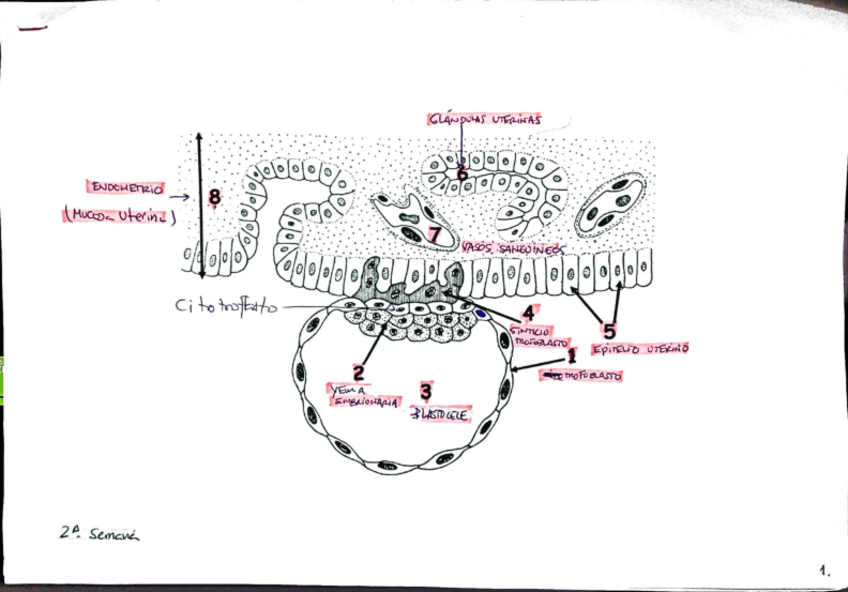 GLÁNDULAS UTERINAS
6
ENDOMETRIO
(MUCOSA Uterina)
8
7
VASOS SANGUÍNEOS
Citotrofoblasto
4
SINTICIO
TROFOBLASTO
5
EPITELIO UTERINO
1
TROFOBLASTO
2
YEMA
EMBRIONARIA
3
BLASTOCELE
2ª Semana
1.